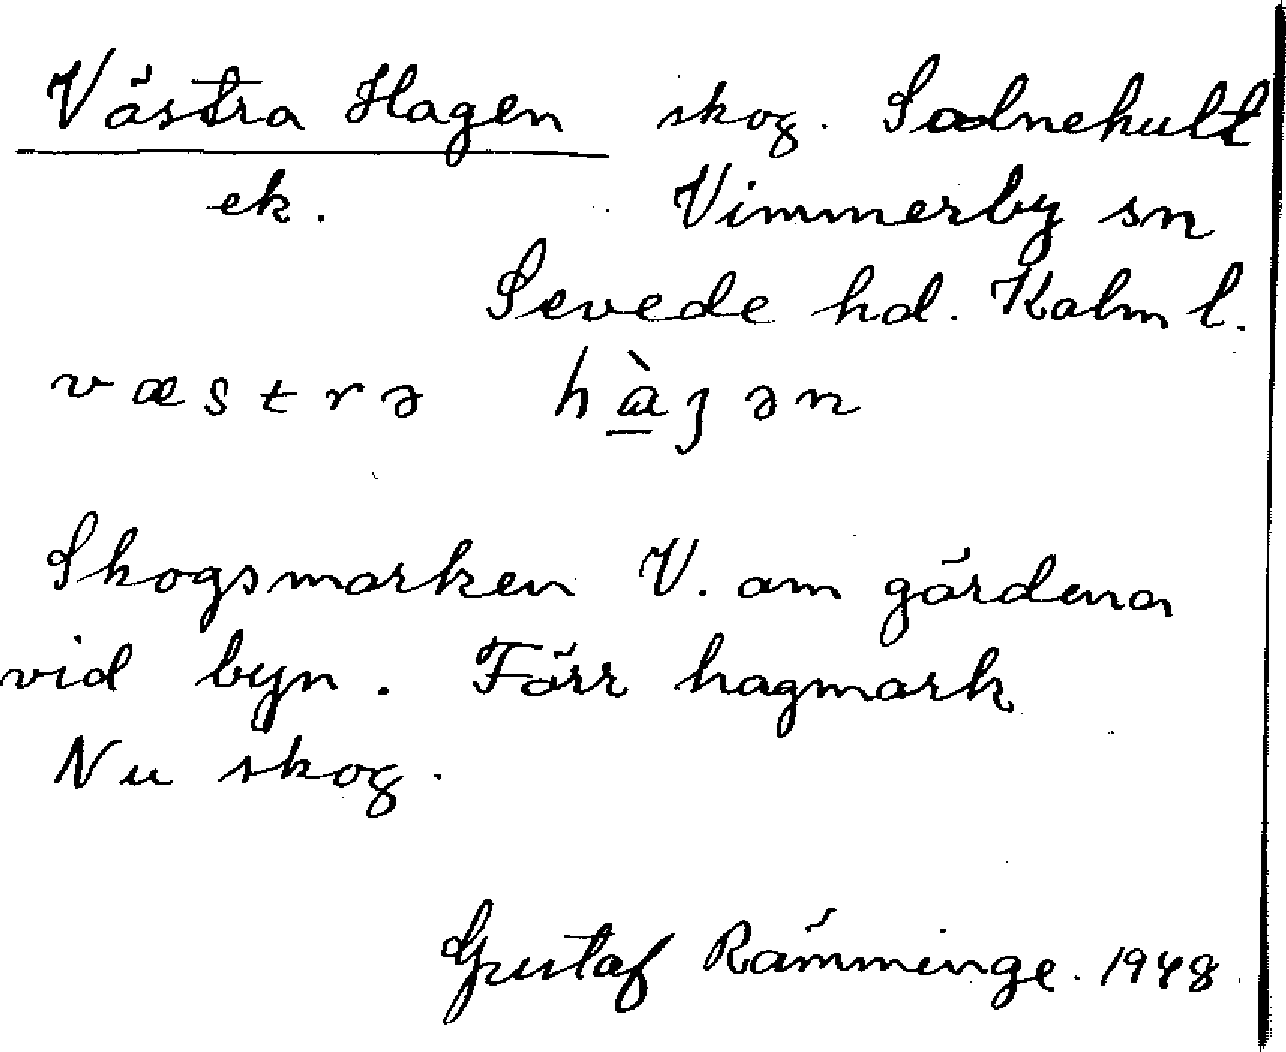 Västra Hagen skog. Salnehult
ek. Vimmerby sn
Sevede hd. Kalm l.
væstrə hàgən
Skogsmarken V. om gårdena
vid byn. Förr hagmark
Nu skog.
Gustaf Rämminge. 1948